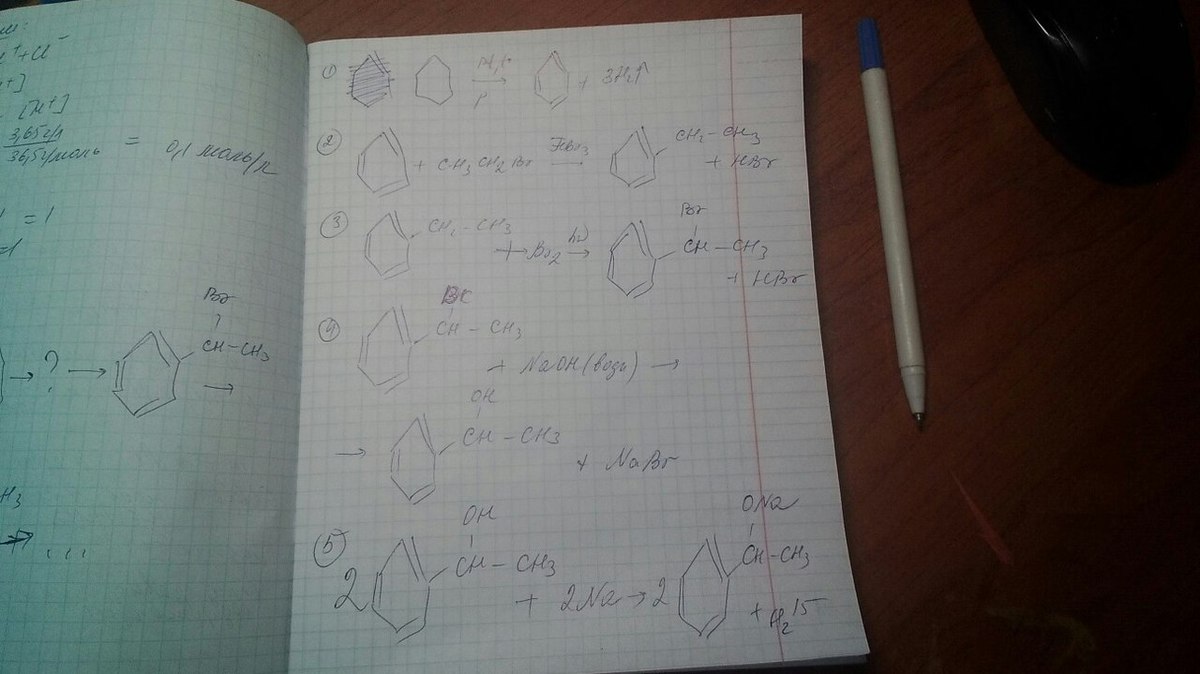 + Cl⁻
[H⁺]
3,65 г/л
36,5 г/моль
= 0,1 моль/л
= 1
=1
Br
→ ? → CH-CH₃
→
H₃
→ ...
① → + 3H₂↑
② + CH₃CH₂Br FeBr₃ → CH₂-CH₃
+ HBr
③ CH₂-CH₃ + Br₂ hν → Br
CH-CH₃
+ HBr
④ Br
CH-CH₃
+ NaOH (водн) →
OH
→ CH-CH₃
+ NaBr
OH ONa
⑤ 2 CH-CH₃ + 2Na → 2 CH-CH₃
+ H₂